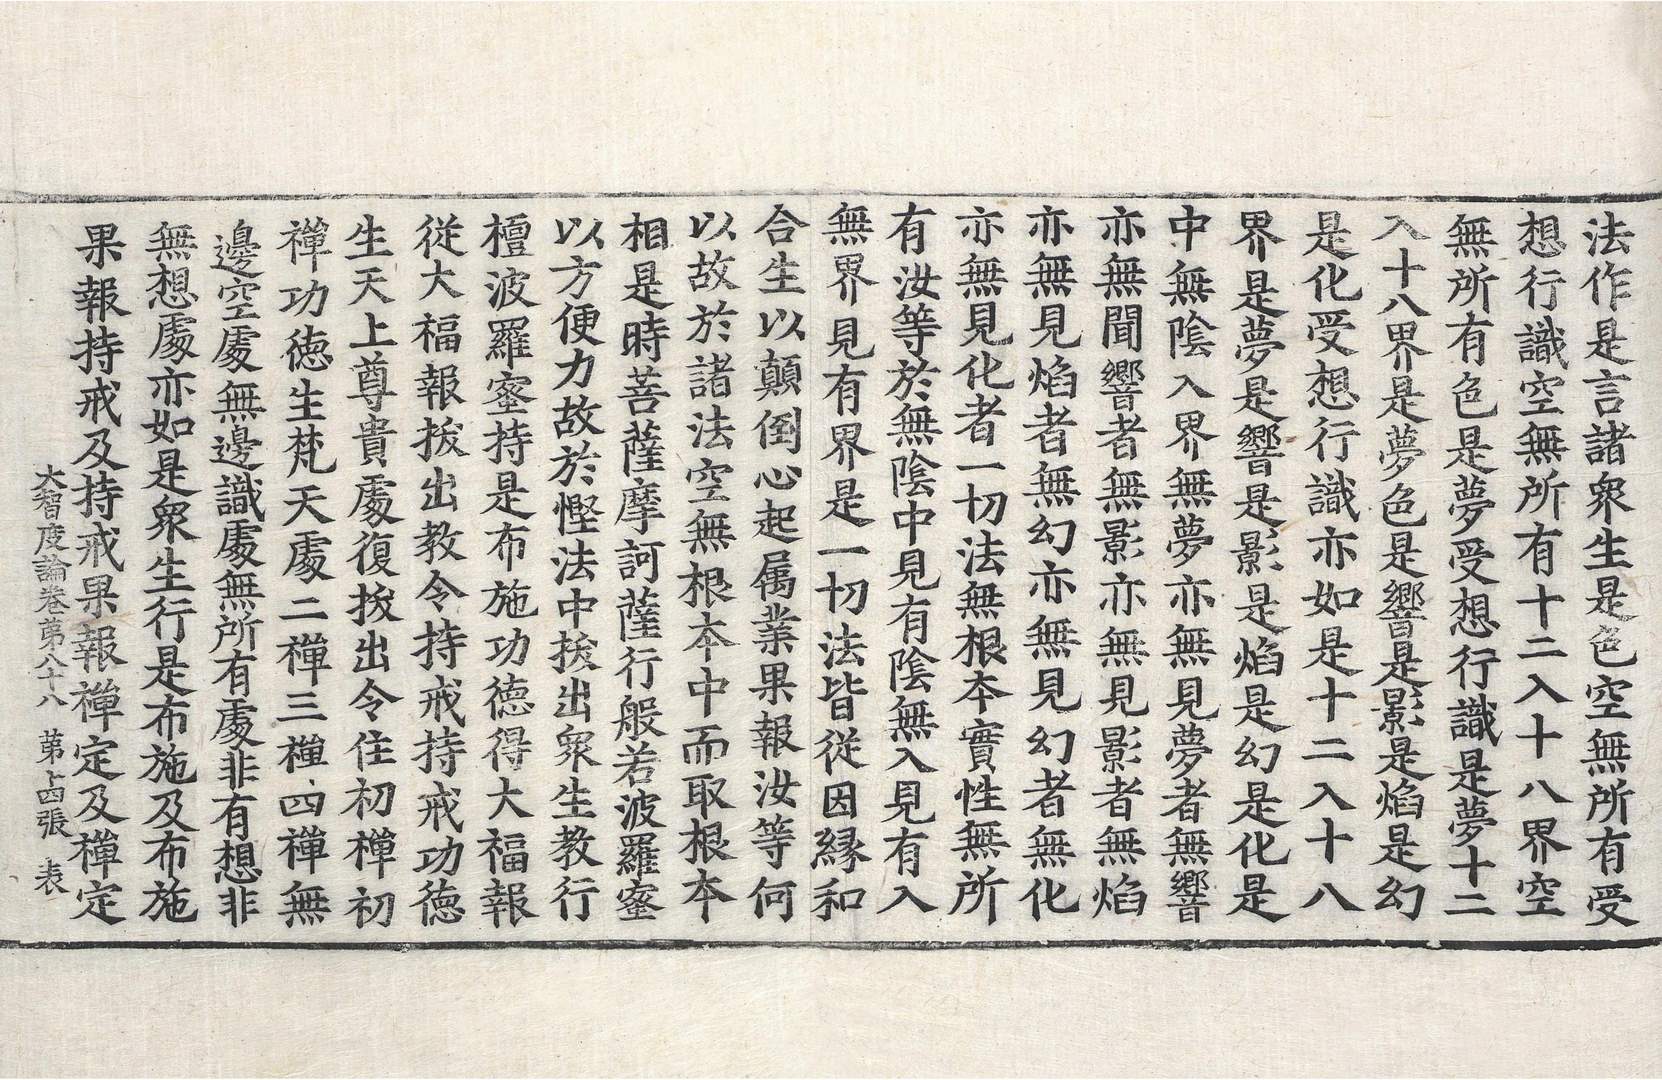 法作是言諸衆生是色空無所有受
想行識空無所有十二入十八界空
無所有色是夢受想行識是夢十二
入十八界是夢色是響是影是焰是幻
是化受想行識亦如是十二入十八
界是夢是響是影是焰是幻是化是
中無陰入界無夢亦無見夢者無響
亦無聞響者無影亦無見影者無焰
亦無見焰者無幻亦無見幻者無化
亦無見化者一切法無根本實性無所
有汝等於無陰中見有陰無入見有入
無界見有界是一切法皆從因縁和
合生以顛倒心起属業果報汝等何
以故於諸法空無根本中而取根本
相是時菩薩摩訶薩行般若波羅蜜
以方便力故於慳法中拔出衆生教行
檀波羅蜜持是布施功德得大福報
從大福報拔出教令持戒持戒功德
生天上尊貴處復拔出令住初禪初
禪功德生梵天處二禪三禪四禪無
邊空處無邊識處無所有處非有想非
無想處亦如是衆生行是布施及布施
果報持戒及持戒果報禪定及禪定
大智度論卷第八十八 第十四張 表